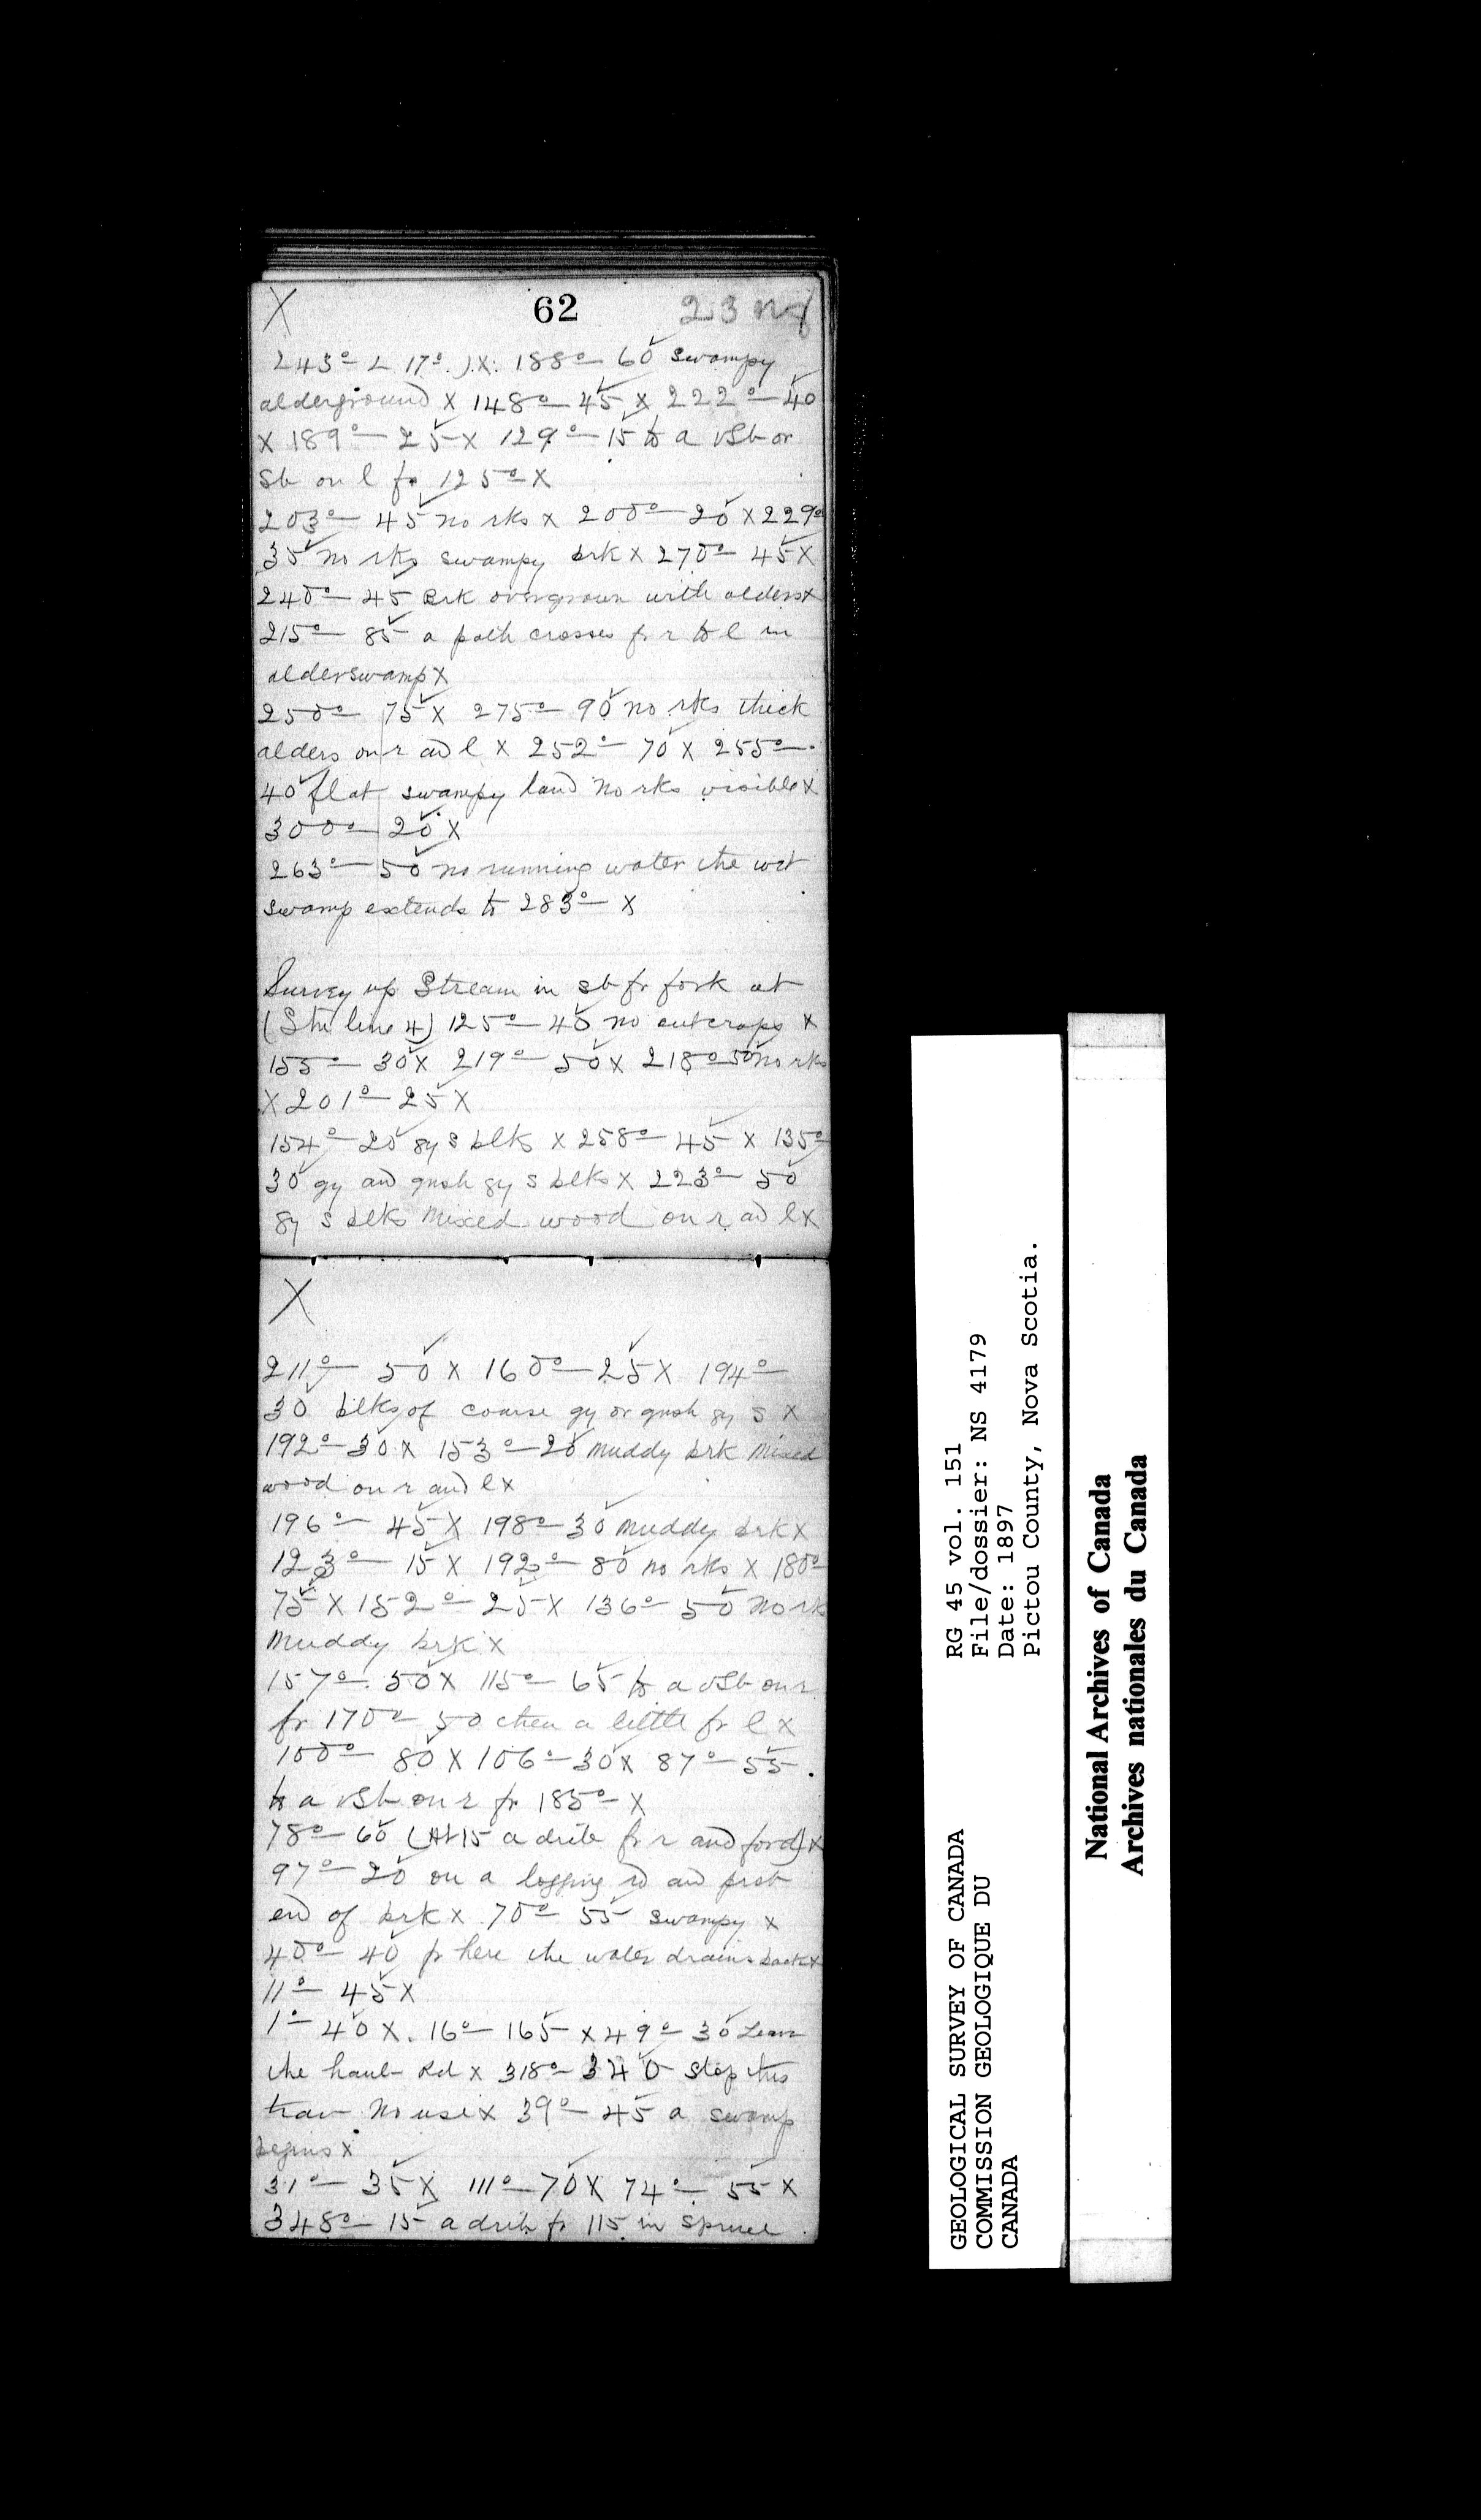 X 62 23
243° L 17°.) X. 188° — 60 swampy
alderground X 148° — 45 X 222° — 40
X 189° — 25 X 129° — 15 to a vSb or
Sb on l fr 125° X
203° — 45 no rks X 200° — 20 X 229°
35 no rks swampy brk X 270° — 45 X
240° — 45 Brk overgrown with alders X
215° — 85 a path crosses fr r to l in
alderswamp X
250° — 75 X 275° — 90 no rks thick
alders on r ad l X 252° — 70 X 255° —
40 flat swampy land no rks visible X
300° — 20 X
263° — 50 no running water the wet
swamp extends to 283° — X
Survey up Stream in sb fr fork at
(Str line 4) 125° — 40 no outcrops X
155 — 30 X 219° — 50 X 218° 50 no rks
X 201° — 25 X
154° — 20 gy s blks X 258° — 45 X 135°
30 gy and gnsh gy s blks X 223° — 50
gy s blks Mixed wood on r ad l X
X
211° — 50 X 160° — 25 X 194° —
30 blks of coarse gy or gnsh gy s X
192° — 30 X 153° — 20 muddy brk mixed
wood on r and l X
196° — 45 X 198° — 30 muddy brk X
123° — 15 X 192° — 80 no rks X 180°
75 X 152° — 25 X 136° — 50 no rk
muddy brk X
157° — 50 X 115° — 65 to a vSb on r
fr 170° — 50 then a little fr l X
100° — 80 X 106° — 30 X 87° — 55.
to a vSb on r fr 185° — X
78° — 60 (At 15 a drite fr r and ford) X
97° — 20 on a logging rd and prob
end of brk X 70° — 55 swampy X
40° — 40 fr here the water drains back X
11° — 45 X
1° — 40 X. 16° — 165 X 49° — 30 Leave
the haul Rd X 318° — 340 stop this
trav no use X 39° — 45 a swamp
begins X
31° — 35 X 111° — 70 X 74° — 55 X
348° — 15 a drite fr 115 in spruce
RG 45 vol. 151
File/dossier: NS 4179
Date: 1897
Pictou County, Nova Scotia.
GEOLOGICAL SURVEY OF CANADA
COMMISSION GEOLOGIQUE DU
CANADA
National Archives of Canada
Archives nationales du Canada